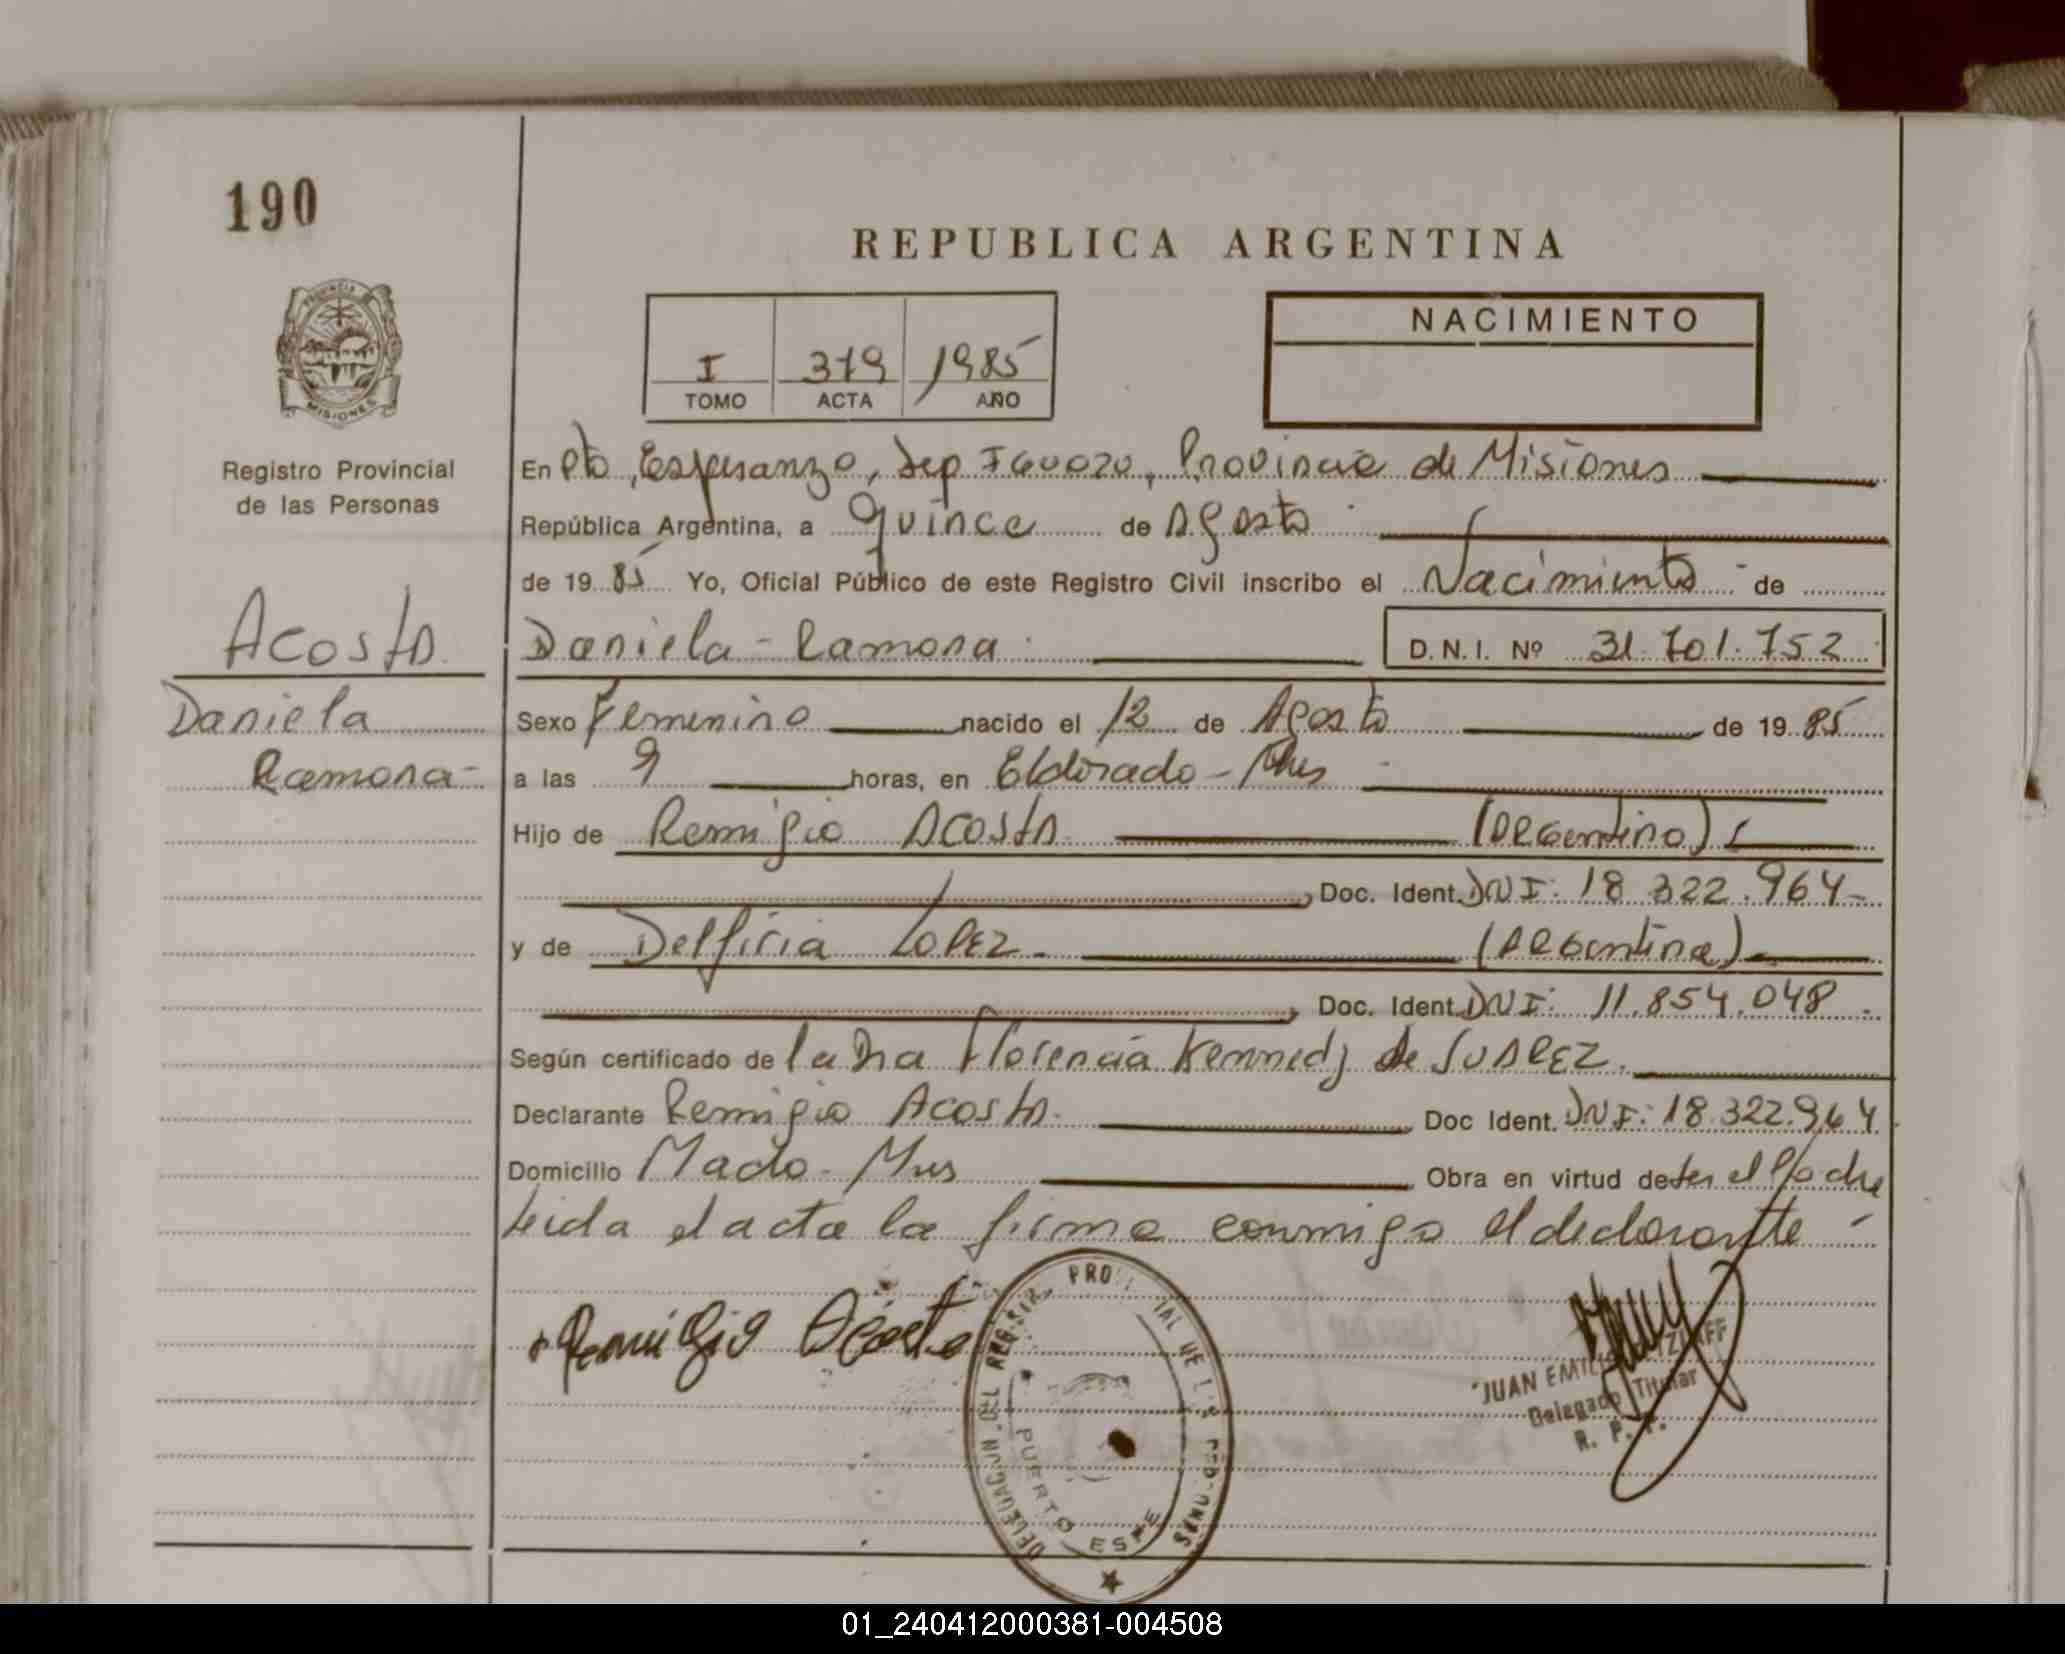 190
REPUBLICA ARGENTINA
NACIMIENTO
I 379 1985
TOMO ACTA AÑO
PROVINCIA DE
MISIONES
Registro Provincial
de las Personas
En Pto, Esperanza, Dep IGUAZU, Provincia de Misiones
República Argentina, a quince de Agosto
de 19 85 Yo, Oficial Público de este Registro Civil inscribo el Nacimiento de
Acosta
Daniela - Ramona
D.N.I. Nº 31.701.752
Daniela
Ramona-
Sexo Femenino nacido el 12 de Agosto de 19 85
a las 9 horas, en Eldorado - Mnes
Hijo de Remigio Acosta (Argentino)
Doc. Ident. DNI: 18.322.964-
y de Delfiria LOPEZ. (Argentina)
Doc. Ident. DNI: 11.854.048.
Según certificado de la Dra Florencia Kennedy de SUAREZ.
Declarante Remigio Acosta. Doc Ident. DNI: 18.322.964
Domicilio Mado - Mnes Obra en virtud de ser el Padre
Leida el acta la firma conmigo el declarante
Remigio Acosta
PUERTO ESPE
JUAN EMIL
Delegado Titular
R. P. P.
01_240412000381-004508